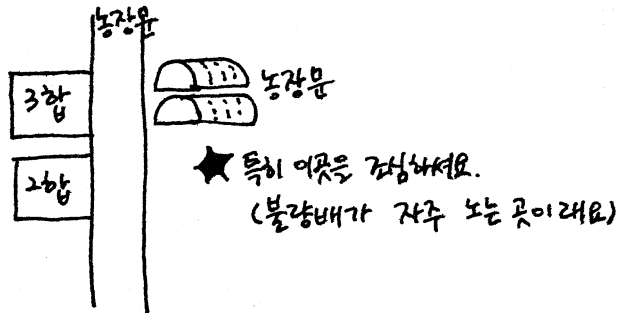 농장문
3합
농장문
2합
특히 이곳을 조심하셔요.
(불량배가 자주 노는 곳이래요)